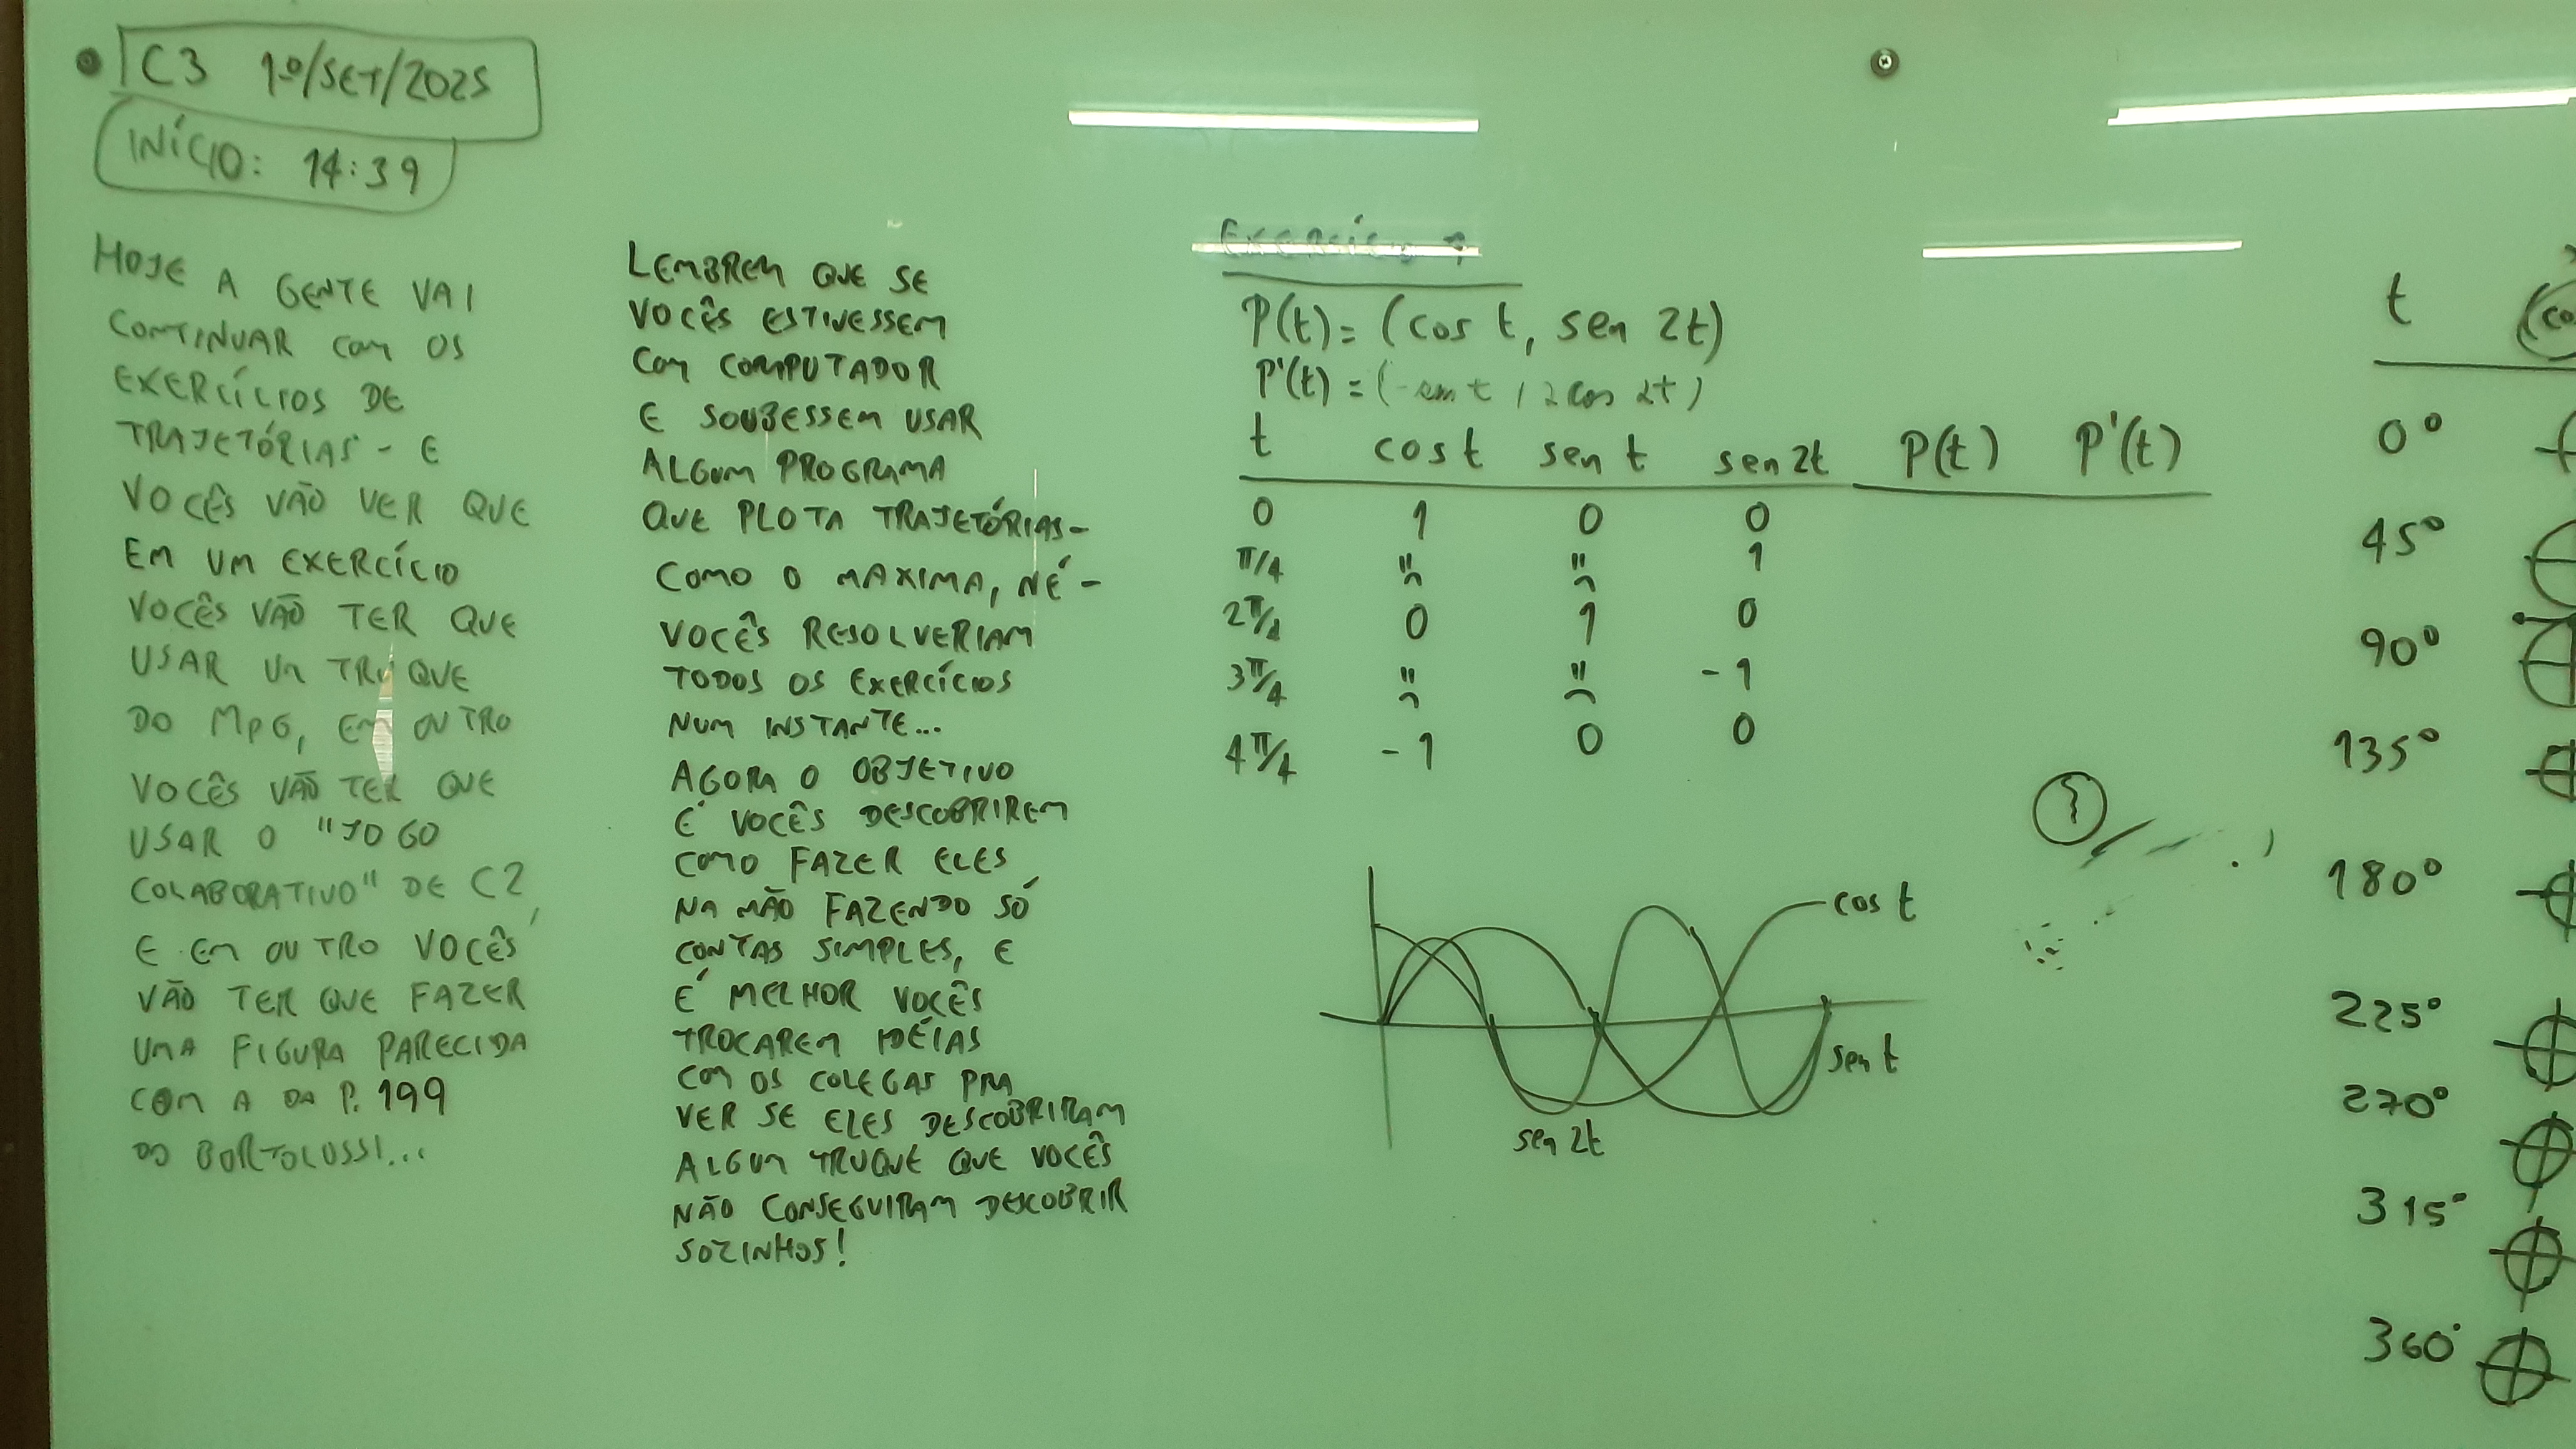 C3 1º/SET/2025
INÍCIO: 14:39
HOJE A GENTE VAI
CONTINUAR COM OS
EXERCÍCIOS DE
TRAJETÓRIAS - E
VOCÊS VÃO VER QUE
EM UM EXERCÍCIO
VOCÊS VÃO TER QUE
USAR UM TRUQUE
DO MPG, EM OUTRO
VOCÊS VÃO TER QUE
USAR O "JOGO
COLABORATIVO" DE C2,
E EM OUTRO VOCÊS
VÃO TER QUE FAZER
UMA FIGURA PARECIDA
COM A DA P. 199
DO BORTOLOSSI...
LEMBREM QUE SE
VOCÊS ESTIVESSEM
COM COMPUTADOR
E SOUBESSEM USAR
ALGUM PROGRAMA
QUE PLOTA TRAJETÓRIAS -
COMO O MAXIMA, NÉ -
VOCÊS RESOLVERIAM
TODOS OS EXERCÍCIOS
NUM INSTANTE...
AGORA O OBJETIVO
É VOCÊS DESCOBRIREM
COMO FAZER ELES
NA MÃO FAZENDO SÓ
CONTAS SIMPLES, E
É MELHOR VOCÊS
TROCAREM IDÉIAS
COM OS COLEGAS PRA
VER SE ELES DESCOBRIRAM
ALGUM TRUQUE QUE VOCÊS
NÃO CONSEGUIRAM DESCOBRIR
SOZINHOS!
EXERCÍCIO
P(t) = (cos t, sen 2t)
P'(t) = (-sen t, 2 cos 2t)
t cos t sen t sen 2t P(t) P'(t)
0 1 0 0
π/4 " " 1
2π/4 0 1 0
3π/4 " " -1
4π/4 -1 0 0
cos t
sen t
sen 2t
t (co
0º
45º
90º
135º
180º
225º
270º
315º
360º